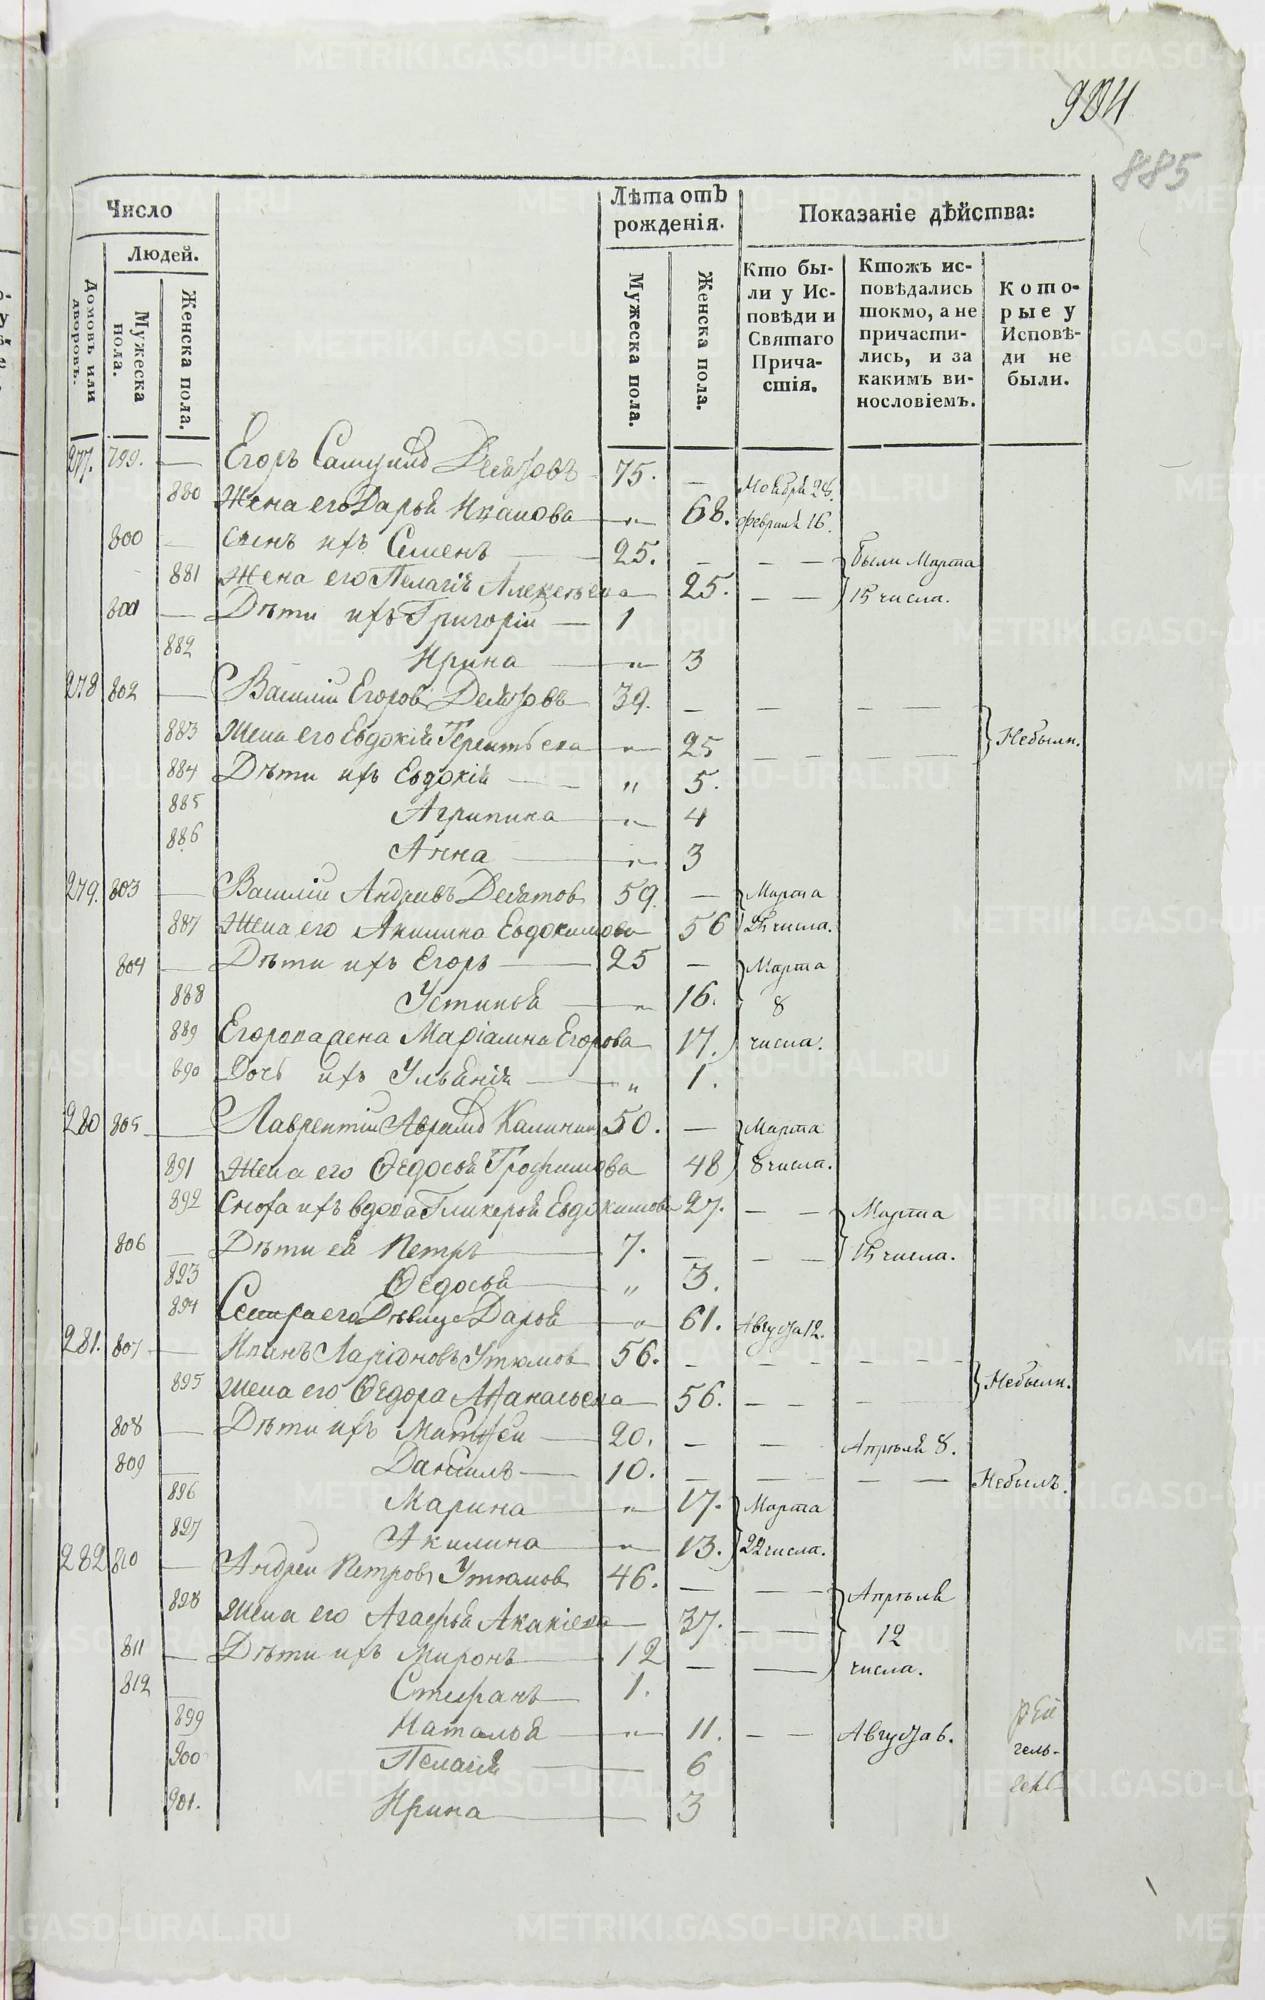 904
885
Число
Людей.
Домовъ или дворовъ.
Мужеска пола.
Женска пола.
Лѣта отъ рожденія.
Мужеска пола.
Женска пола.
Показаніе дѣйства:
Кто были у Исповѣди и Святаго Причастія.
Ктожъ исповѣдались токмо, а не причастились, и за какимъ винословіемъ.
Которые у Исповѣди не были.
277. 799. — Егоръ Самуилъ 75. — Ноября 28.
880 Жена его Дарья Иванова — „ — 68. февраля 16.
800 — сынъ ихъ Семенъ — 25. — — — были Марта
881 Жена его Пелагія Алексѣева — 25. — — 15 числа.
801 — Дѣти ихъ Григорій — 1
882 Ирина — „ — 3
278 802 — Василій Егоровъ 39. — — — —
883 Жена его Евдокія Терентьева — „ — 25 — — — — Небыли.
884 Дѣти ихъ Евдокія — „ 5.
885 Агрипина — „ — 4
886 Анна — „ — 3
279. 803 — Василій Андреевъ 59. — Марта
887 Жена его Акилина Евдокимова 56 числа.
804 — Дѣти ихъ Егоръ — 25 — Марта
888 Устинья — „ 16. 8
889 Егорова жена Маріамна Егорова 17. числа.
890 Дочь ихъ Ульянія — „ 1.
280 805 — Лаврентій Аврамъ Калининъ 50. — Марта
891 Жена его Ѳедосья Трофимова 48 8 числа.
892 Сноха ихъ вдова Гликерья Евдокимова 27. — — Марта
806 — Дѣти ея Петръ — 7. — — — 15 числа.
893 Ѳедосья — „ 3.
894 Сестра его Дѣвица Дарья — „ 61. Августа 12.
281. 807 — Иванъ Ларіоновъ Утюмов 56. — — — — — —
895 Жена его Ѳедора Аѳанасьева — 56. — — — — Небыли.
808 — Дѣти ихъ Матѳей — 20. — — Апрѣля 8.
809 — Даніилъ — 10. — — — — Небылъ.
896 Марина — „ — 17. Марта
897 Акилина — „ — 13. 22 числа.
282 810 — Андрей Петровъ Утюмов 46. — — — Апрѣля
898 Жена его Агафья Акакіева — 37. — — 12
811 — Дѣти ихъ Миронъ — 12 — — числа.
812 — Стефанъ — 1.
899 Наталья — „ — 11. — — Августа 6.
900 Пелагія — 6
901. Ирина — 3
METRIKI.GASO-URAL.RU